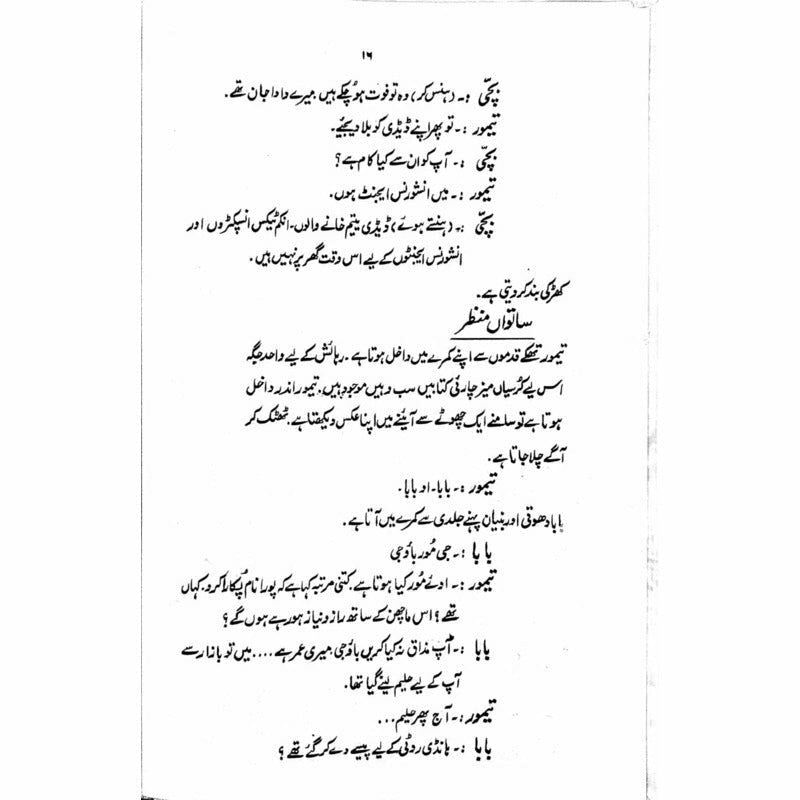 ۱۶
بچّی :۔ (ہنس کر) وہ تو فوت ہو چکے ہیں میرے دادا جان تھے۔
تیمور :۔ تو پھر اپنے ڈیڈی کو بلا دیجئے۔
بچّی :۔ آپ کو ان سے کیا کام ہے؟
تیمور :۔ میں انشورنس ایجنٹ ہوں۔
بچّی :۔ (ہنستے ہوئے) ڈیڈی یتیم خانے والوں۔ انکم ٹیکس انسپکٹروں اور
انشورنس ایجنٹوں کے لیے اس وقت گھر پر نہیں ہیں۔
کھڑکی بند کر دیتی ہے۔
ساتواں منظر
تیمور تھکے قدموں سے اپنے کمرے میں داخل ہوتا ہے۔ رہائش کے لیے واحد جگہ
اس لیے کرسیاں میز چارپائی کتابیں سب وہیں موجود ہیں۔ تیمور اندر داخل
ہوتا ہے تو سامنے ایک چھوٹے سے آئینے میں اپنا عکس دیکھتا ہے۔ ٹھٹک کر
آگے چلا جاتا ہے۔
تیمور :۔ بابا۔ او بابا۔
بابا دھوتی اور بنیان پہنے جلدی سے کمرے میں آتا ہے۔
بابا :۔ جی مُور باؤ جی
تیمور :۔ اوئے مُور کیا ہوتا ہے۔ کتنی مرتبہ کہا ہے کہ پورا نام پُکارا کرو۔ کہاں
تھے؟ اس ماچھن کے ساتھ راز و نیاز ہو رہے ہوں گے؟
بابا :۔ آپ مذاق نہ کیا کریں باؤ جی میری عمر ہے .... میں تو بازار سے
آپ کے لیے حلیم لینے گیا تھا۔
تیمور :۔ آج پھر حلیم...
بابا :۔ ہانڈی روٹی کے لیے پیسے دے کر گئے تھے؟